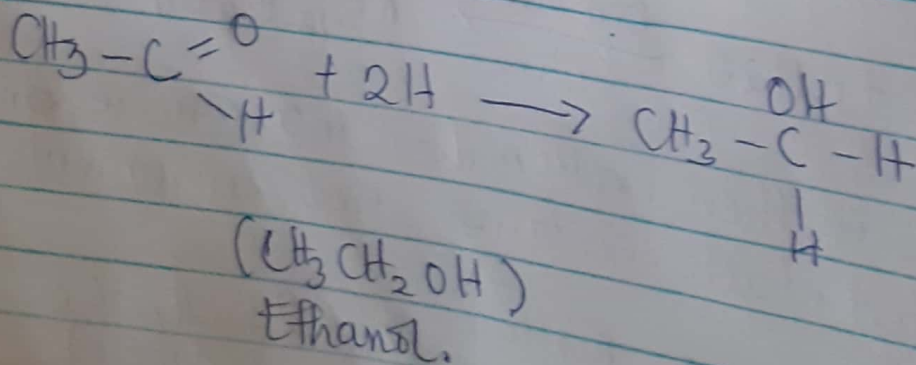 CH₃ – C = O
\ H
+ 2H ⟶
OH
CH₃ – C – H
|
H
(CH₃CH₂OH)
Ethanol.